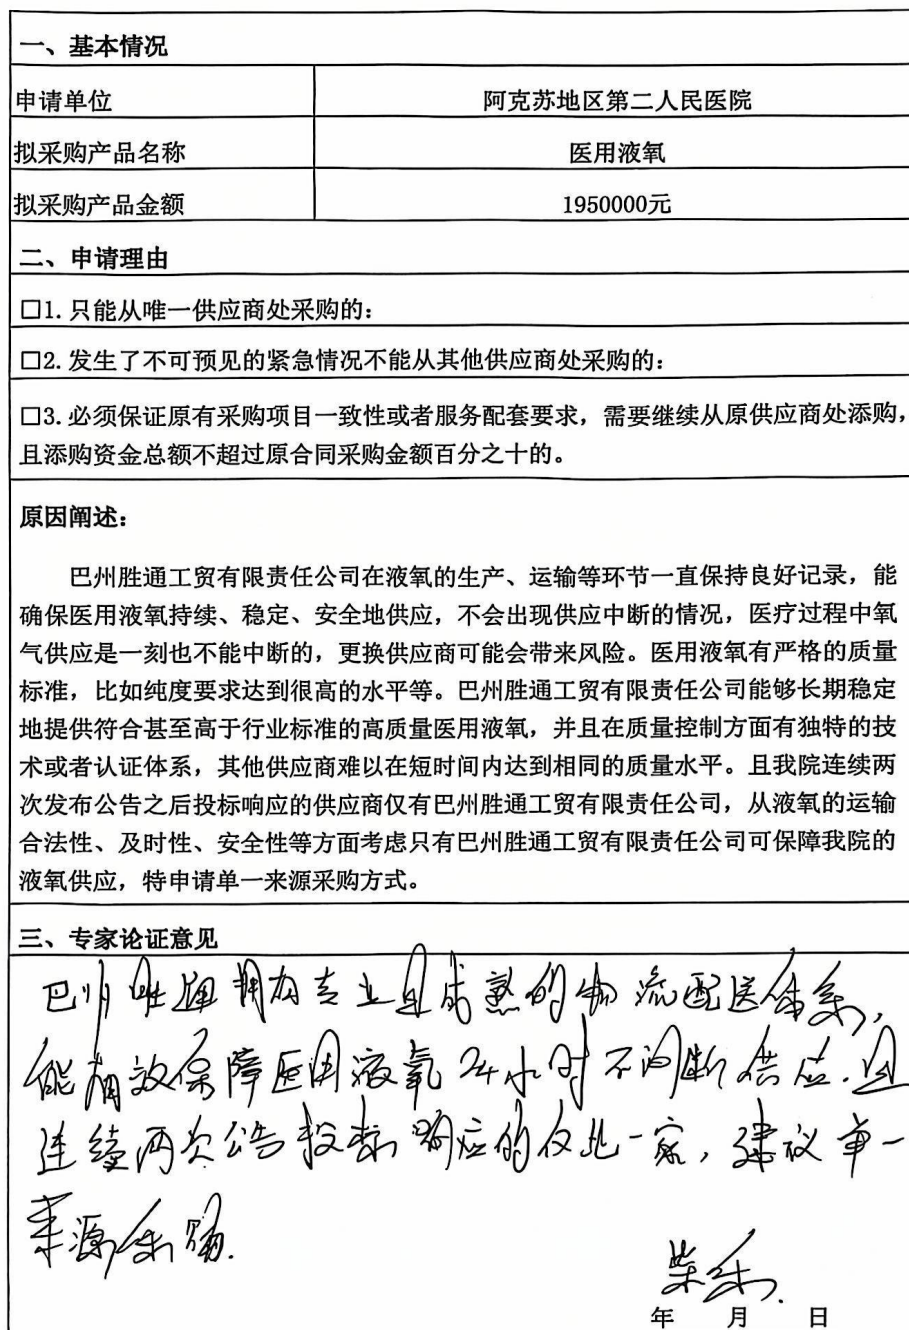 一、基本情况
申请单位 阿克苏地区第二人民医院
拟采购产品名称 医用液氧
拟采购产品金额 1950000元
二、申请理由
□1. 只能从唯一供应商处采购的:
□2. 发生了不可预见的紧急情况不能从其他供应商处采购的:
□3. 必须保证原有采购项目一致性或者服务配套要求，需要继续从原供应商处添购，
且添购资金总额不超过原合同采购金额百分之十的。
原因阐述:
巴州胜通工贸有限责任公司在液氧的生产、运输等环节一直保持良好记录，能
确保医用液氧持续、稳定、安全地供应，不会出现供应中断的情况，医疗过程中氧
气供应是一刻也不能中断的，更换供应商可能会带来风险。医用液氧有严格的质量
标准，比如纯度要求达到很高的水平等。巴州胜通工贸有限责任公司能够长期稳定
地提供符合甚至高于行业标准的高质量医用液氧，并且在质量控制方面有独特的技
术或者认证体系，其他供应商难以在短时间内达到相同的质量水平。且我院连续两
次发布公告之后投标响应的供应商仅有巴州胜通工贸有限责任公司，从液氧的运输
合法性、及时性、安全性等方面考虑只有巴州胜通工贸有限责任公司可保障我院的
液氧供应，特申请单一来源采购方式。
三、专家论证意见
巴州胜通拥有专业且成熟的物流配送体系，
能有效保障医用液氧24小时不间断供应.且
连续两次公告投标响应的仅此一家，建议单一
来源采购.
年 月 日